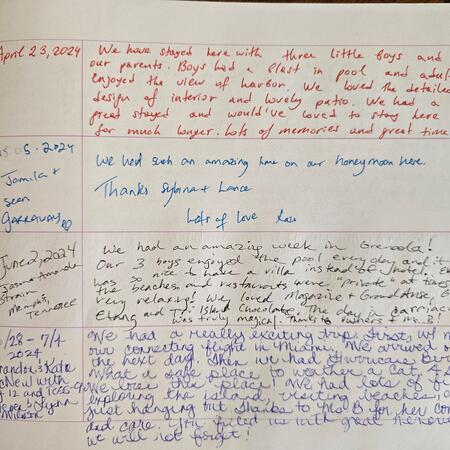 April 23, 2024
We have stayed here with three little boys and
our parents. Boys had a blast in pool and adul
enjoyed the view of harbor. We loved the detailed
design of interior and lovely patio. We had a
great stayed and would've loved to stay here
for much longer. Lots of memories and great time
05.05.2024
Jamila +
Sean
Garraway
We had such an amazing time on our honeymoon here.
Thanks Sylvina + Lance
Lots of love
June 2, 2024
Jason + Amanda
Strain
Memphis,
Tennessee
We had an amazing week in Grenada!
Our 3 boys enjoyed the pool everyday and it
was so nice to have a villa instead of hotel.
the beaches and restaurants were "private" at times
very relaxing! We loved Magazine + Grand Anse,
Etang and Tri Island Chocolate. The day in Carriac
was truly magical. Thanks to
6/28 - 7/4
2024
We had a really exciting trip. First,
our connecting flight in Miami. We arrived
the next day. Then we had Hurricane
What a safe place to weather a Cat 4
We love this place! We had lots of
exploring the island, visiting beaches,
just hanging out. Thanks to for her
and care. You filled us with great memories
we will not forget!